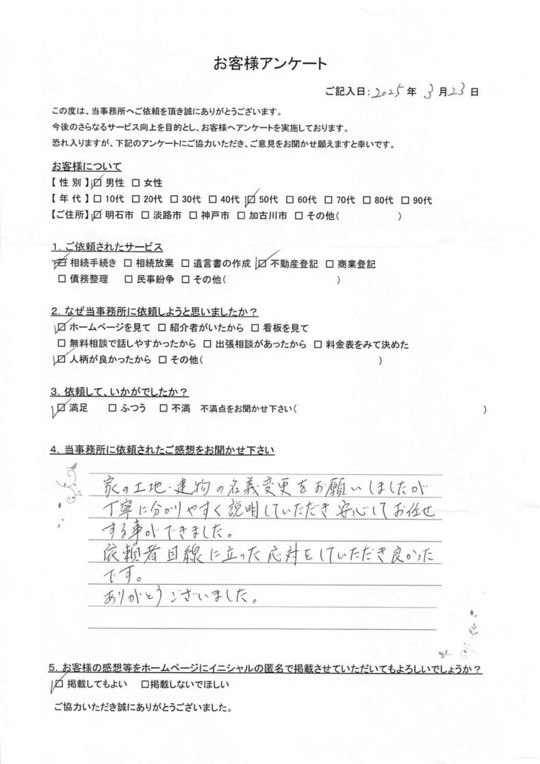 お客様アンケート
ご記入日：2025年 3月23日
この度は、当事務所へご依頼を頂き誠にありがとうございます。
今後のさらなるサービス向上を目的とし、お客様へアンケートを実施しております。
恐れ入りますが、下記のアンケートにご協力いただき、ご意見をお聞かせ願えますと幸いです。
お客様について
【 性 別 】☑ 男性 □ 女性
【 年 代 】□ 10代 □ 20代 □ 30代 □ 40代 ☑ 50代 □ 60代 □ 70代 □ 80代 □ 90代
【ご住所】☑ 明石市 □ 淡路市 □ 神戸市 □ 加古川市 □ その他（ ）
1．ご依頼されたサービス
☑ 相続手続き □ 相続放棄 □ 遺言書の作成 ☑ 不動産登記 □ 商業登記
□ 債務整理 □ 民事紛争 □ その他（ ）
2．なぜ当事務所に依頼しようと思いましたか？
☑ ホームページを見て □ 紹介者がいたから □ 看板を見て
□ 無料相談で話しやすかったから □ 出張相談があったから □ 料金表をみて決めた
☑ 人柄が良かったから □ その他（ ）
3．依頼して、いかがでしたか？
☑ 満足 □ ふつう □ 不満 不満点をお聞かせ下さい（ ）
4．当事務所に依頼されたご感想をお聞かせ下さい
家の土地・建物の名義変更をお願いしましたが
丁寧に分かりやすく説明していただき安心してお任せ
する事ができました。
依頼者目線に立った応対をしていただき良かった
です。
ありがとうございました。
5．お客様の感想等をホームページにイニシャルの匿名で掲載させていただいてもよろしいでしょうか？
☑ 掲載してもよい □掲載しないでほしい
ご協力いただき誠にありがとうございました。